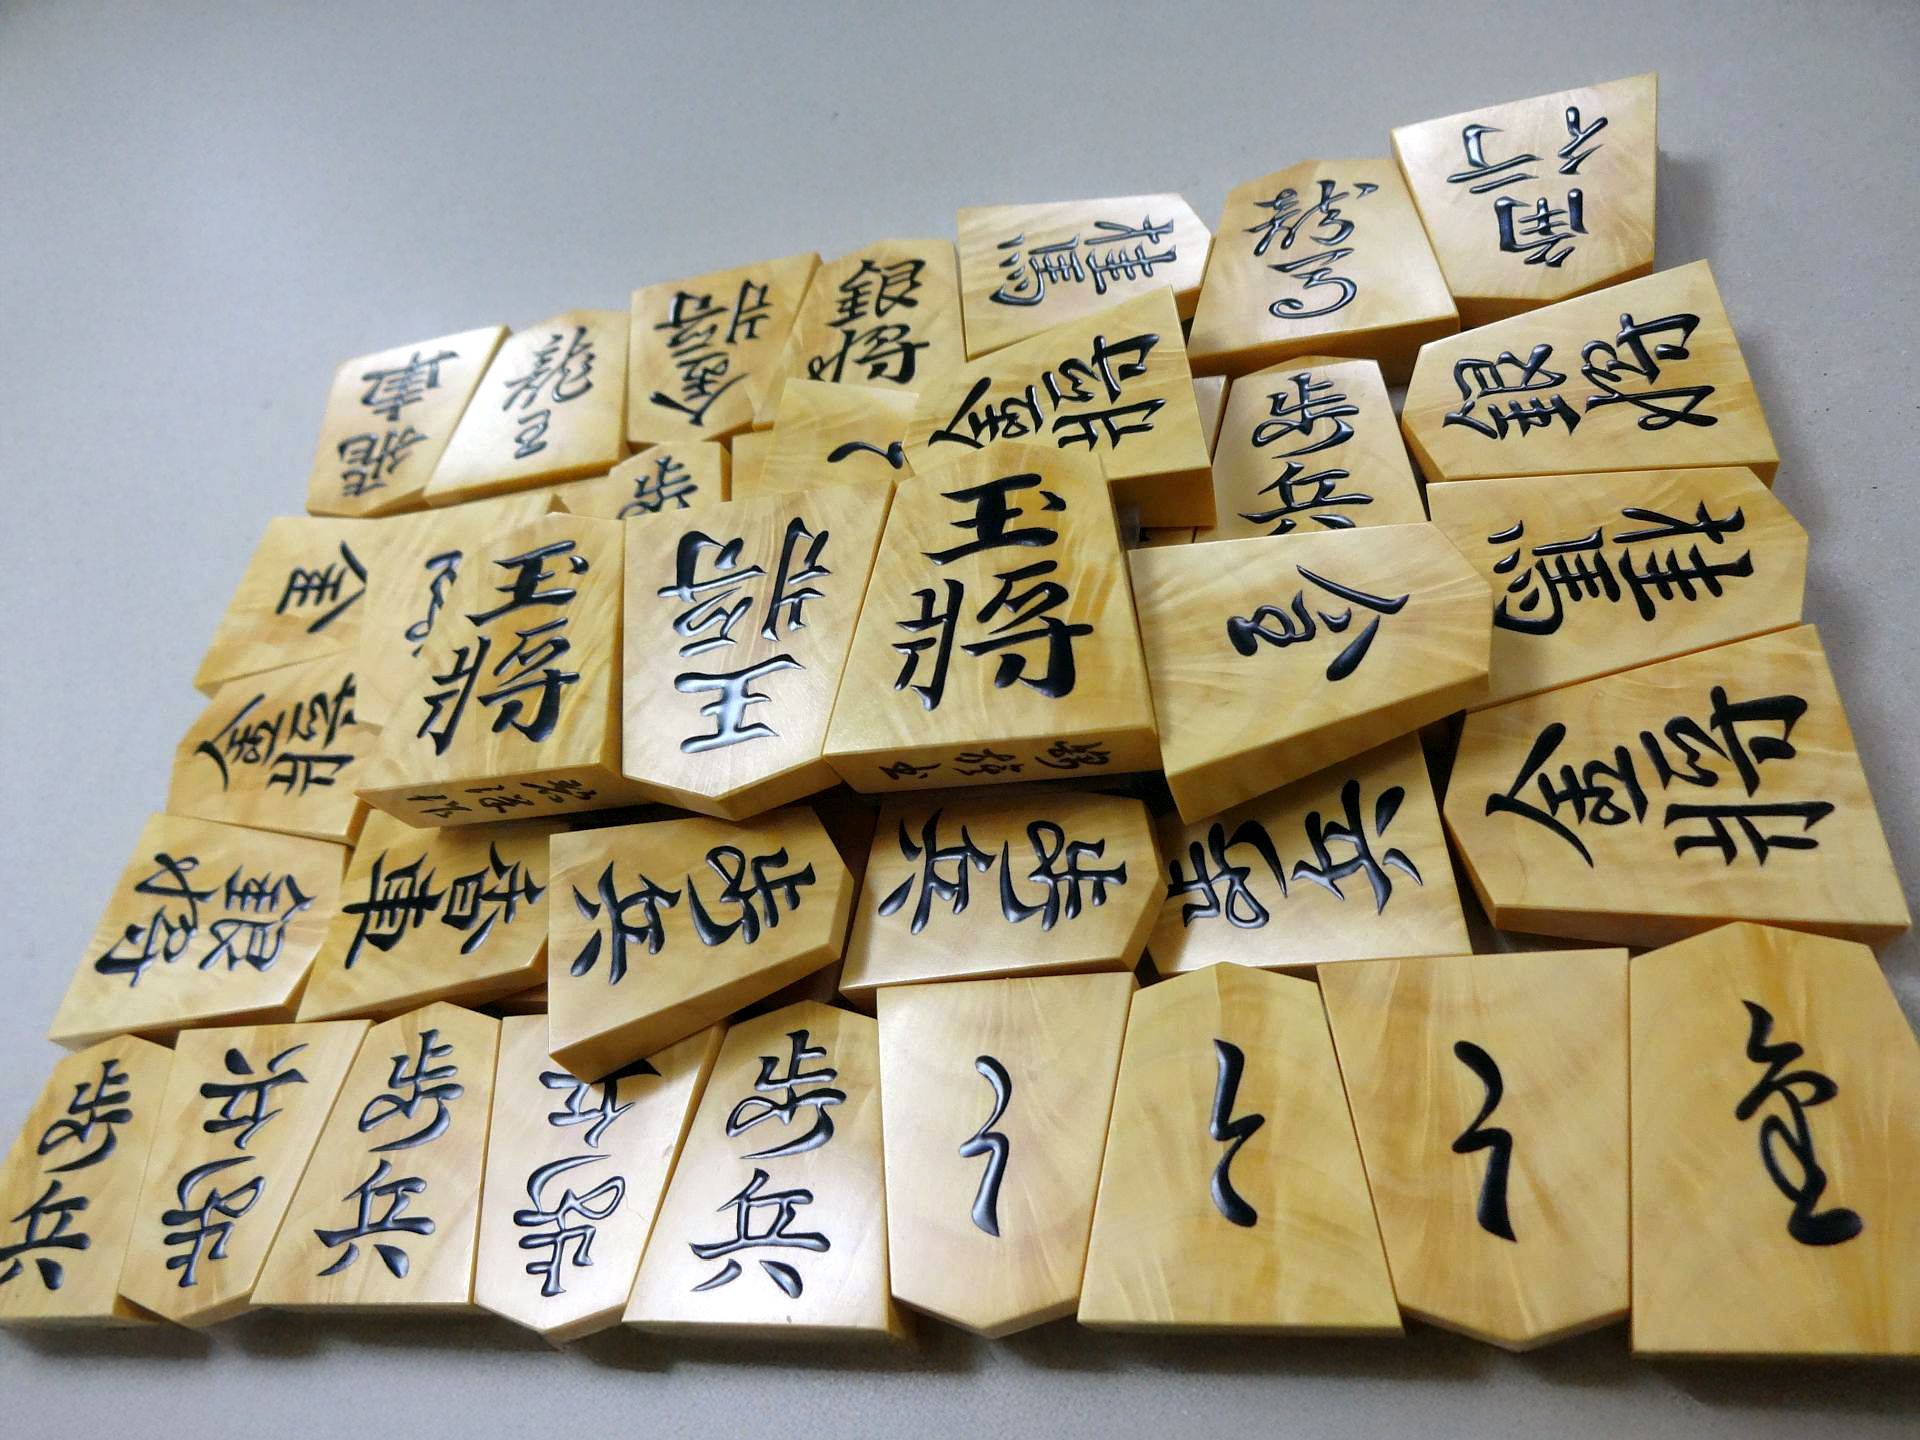 角行
龍馬
桂馬
銀将
金将
龍王
飛車
銀将
歩兵
金将
歩
桂馬
金
玉将
王将
玉将
金将
金将
歩兵
歩兵
歩兵
香車
銀将
歩兵
歩兵
歩兵
歩兵
歩兵